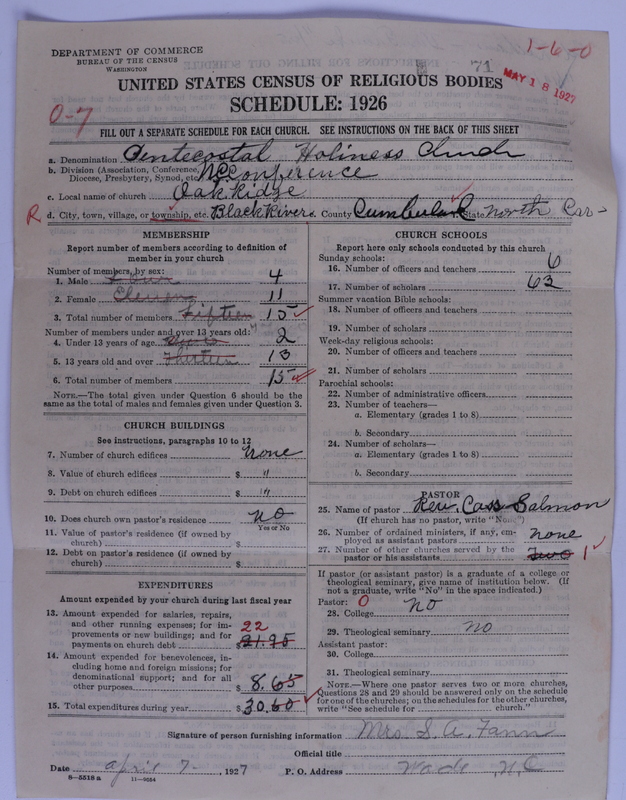 1-6-0
DEPARTMENT OF COMMERCE
BUREAU OF THE CENSUS
WASHINGTON
71
MAY 18 1927
UNITED STATES CENSUS OF RELIGIOUS BODIES
SCHEDULE: 1926
0-7
FILL OUT A SEPARATE SCHEDULE FOR EACH CHURCH. SEE INSTRUCTIONS ON THE BACK OF THIS SHEET
a. Denomination Pentecostal Holiness Church
b. Division (Association, Conference, Diocese, Presbytery, Synod, etc.) N.C. Conference
c. Local name of church Oak Ridge
R d. City, town, village, or township, etc. Black River e. County Cumberland State North Car-
MEMBERSHIP
Report number of members according to definition of
member in your church
Number of members by sex:
1. Male Four 4
2. Female Eleven 11
3. Total number of members Fifteen 15
Number of members under and over 13 years old:
4. Under 13 years of age Two 2
5. 13 years old and over Thirteen 13
6. Total number of members 15
NOTE.—The total given under Question 6 should be
same as the total of males and females given under Question 3.
CHURCH BUILDINGS
See instructions, paragraphs 10 to 12
7. Number of church edifices none
8. Value of church edifices $ "
9. Debt on church edifices $ "
10. Does church own pastor's residence no
Yes or No
11. Value of pastor's residence (if owned by
church) $
12. Debt on pastor's residence (if owned by
church) $
EXPENDITURES
Amount expended by your church during last fiscal year
13. Amount expended for salaries, repairs,
and other running expenses; for im-
provements or new buildings; and for
payments on church debt $ 21.95 22
14. Amount expended for benevolences, in-
cluding home and foreign missions; for
denominational support; and for all
other purposes $ 8.65
15. Total expenditures during year $ 30.60
CHURCH SCHOOLS
Report here only schools conducted by this church
Sunday schools:
16. Number of officers and teachers 6
17. Number of scholars 63
Summer vacation Bible schools:
18. Number of officers and teachers
19. Number of scholars
Week-day religious schools:
20. Number of officers and teachers
21. Number of scholars
Parochial schools:
22. Number of administrative officers
23. Number of teachers—
a. Elementary (grades 1 to 8)
b. Secondary
24. Number of scholars—
a. Elementary (grades 1 to 8)
b. Secondary
PASTOR
25. Name of pastor Rev. Cass Salmon
(If church has no pastor, write "None")
26. Number of ordained ministers, if any, em-
ployed as assistant pastors none
27. Number of other churches served by the
pastor or his assistants Two 1
If pastor (or assistant pastor) is a graduate of a college or
theological seminary, give name of institution below. (If
not a graduate, write "No" in the space indicated.)
Pastor: 0
28. College no
29. Theological seminary no
Assistant pastor:
30. College
31. Theological seminary
NOTE.—Where one pastor serves two or more churches,
Questions 28 and 29 should be answered only on the schedule
for one of the churches; on the schedules for the other churches,
write "See schedule for church."
Signature of person furnishing information Mrs. S. A. Fann
Official title
Date april 7, 1927 P. O. Address Wade, N.C
8-5518a 11-9034